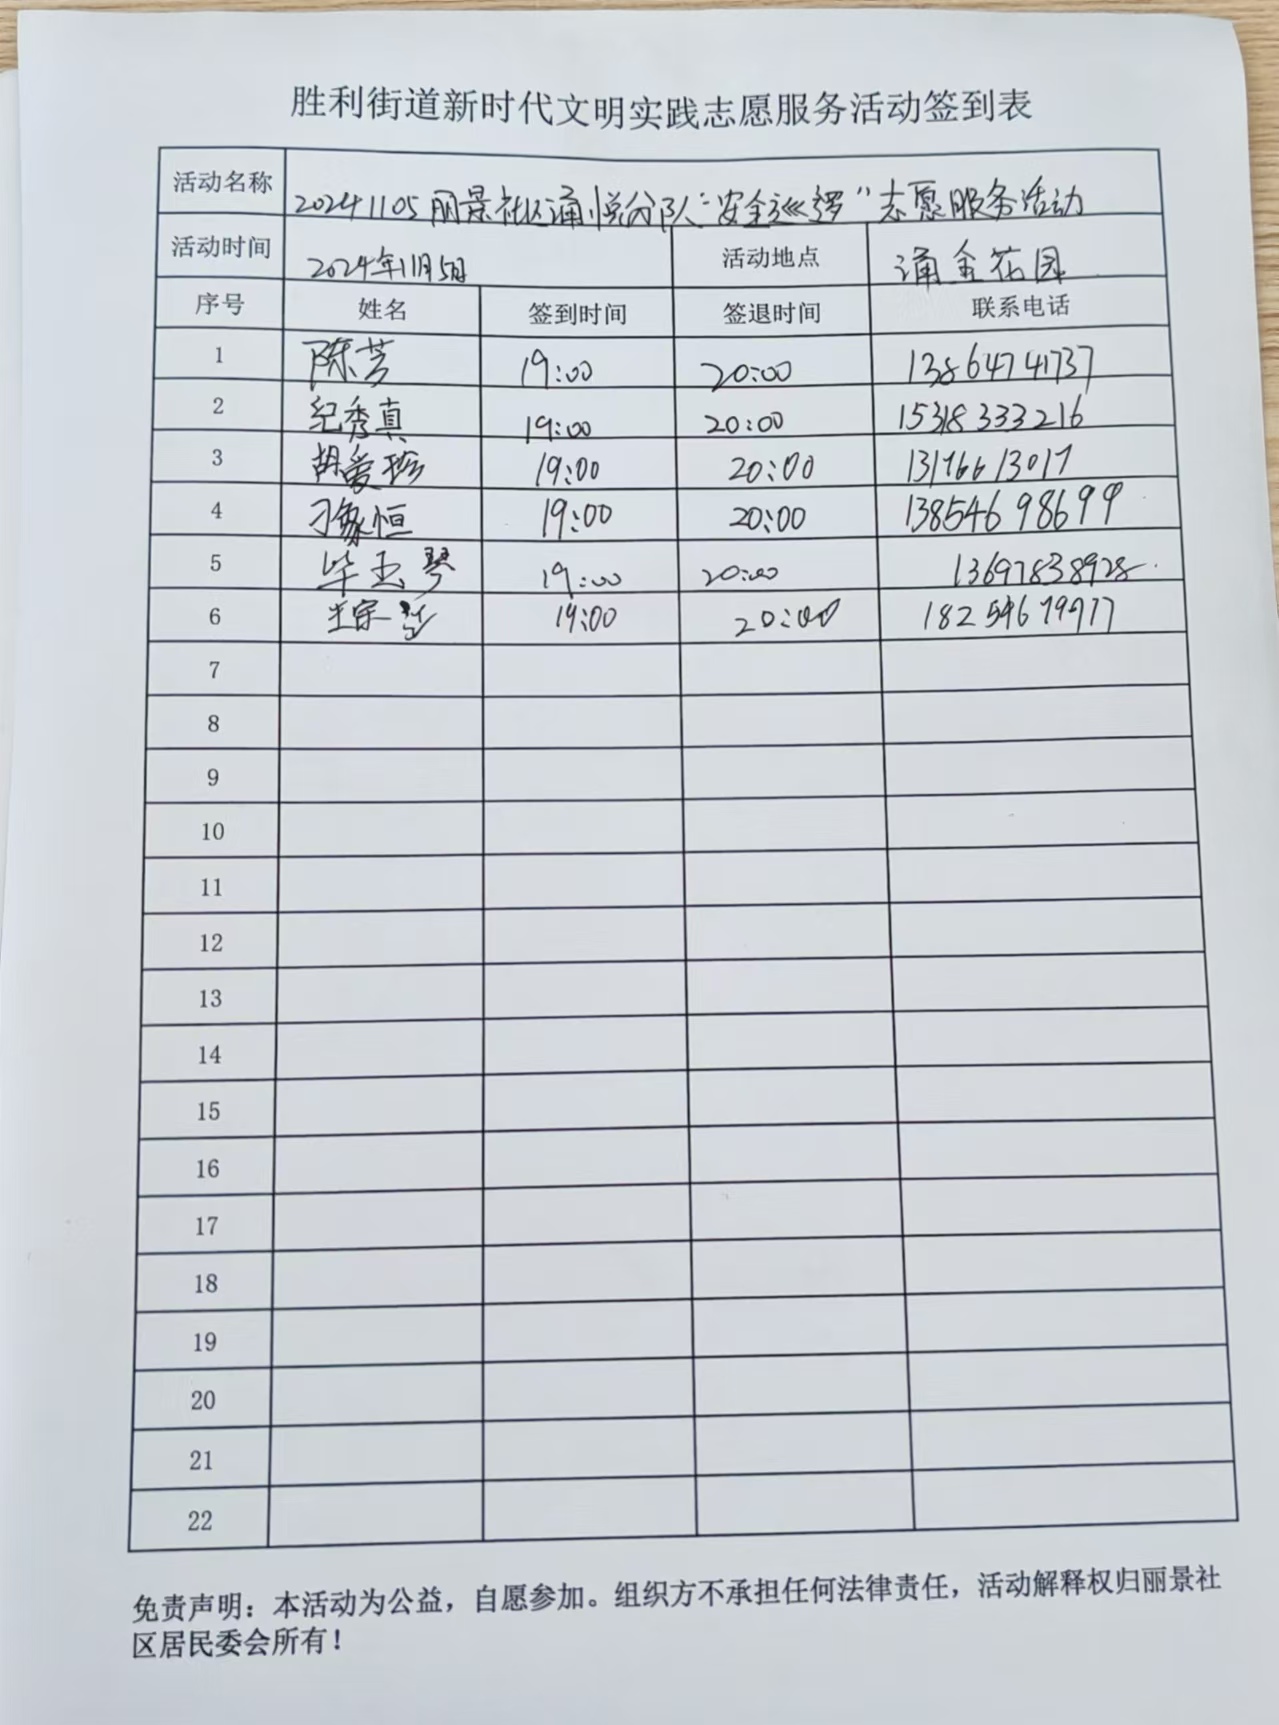 胜利街道新时代文明实践志愿服务活动签到表
活动名称 20241105丽景社区涌悦分队“安全巡逻”志愿服务活动
活动时间 2024年11月5日 活动地点 涌金花园
序号 姓名 签到时间 签退时间 联系电话
1 陈芳 19:00 20:00 13864741737
2 纪秀真 19:00 20:00 15318333216
3 胡爱珍 19:00 20:00 13176613017
4 刁象恒 19:00 20:00 13854698699
5 毕玉琴 19:00 20:00 13697838928
6 19:00 20:00
7
8
9
10
11
12
13
14
15
16
17
18
19
20
21
22
免责声明：本活动为公益，自愿参加。组织方不承担任何法律责任，活动解释权归丽景社
区居民委会所有！